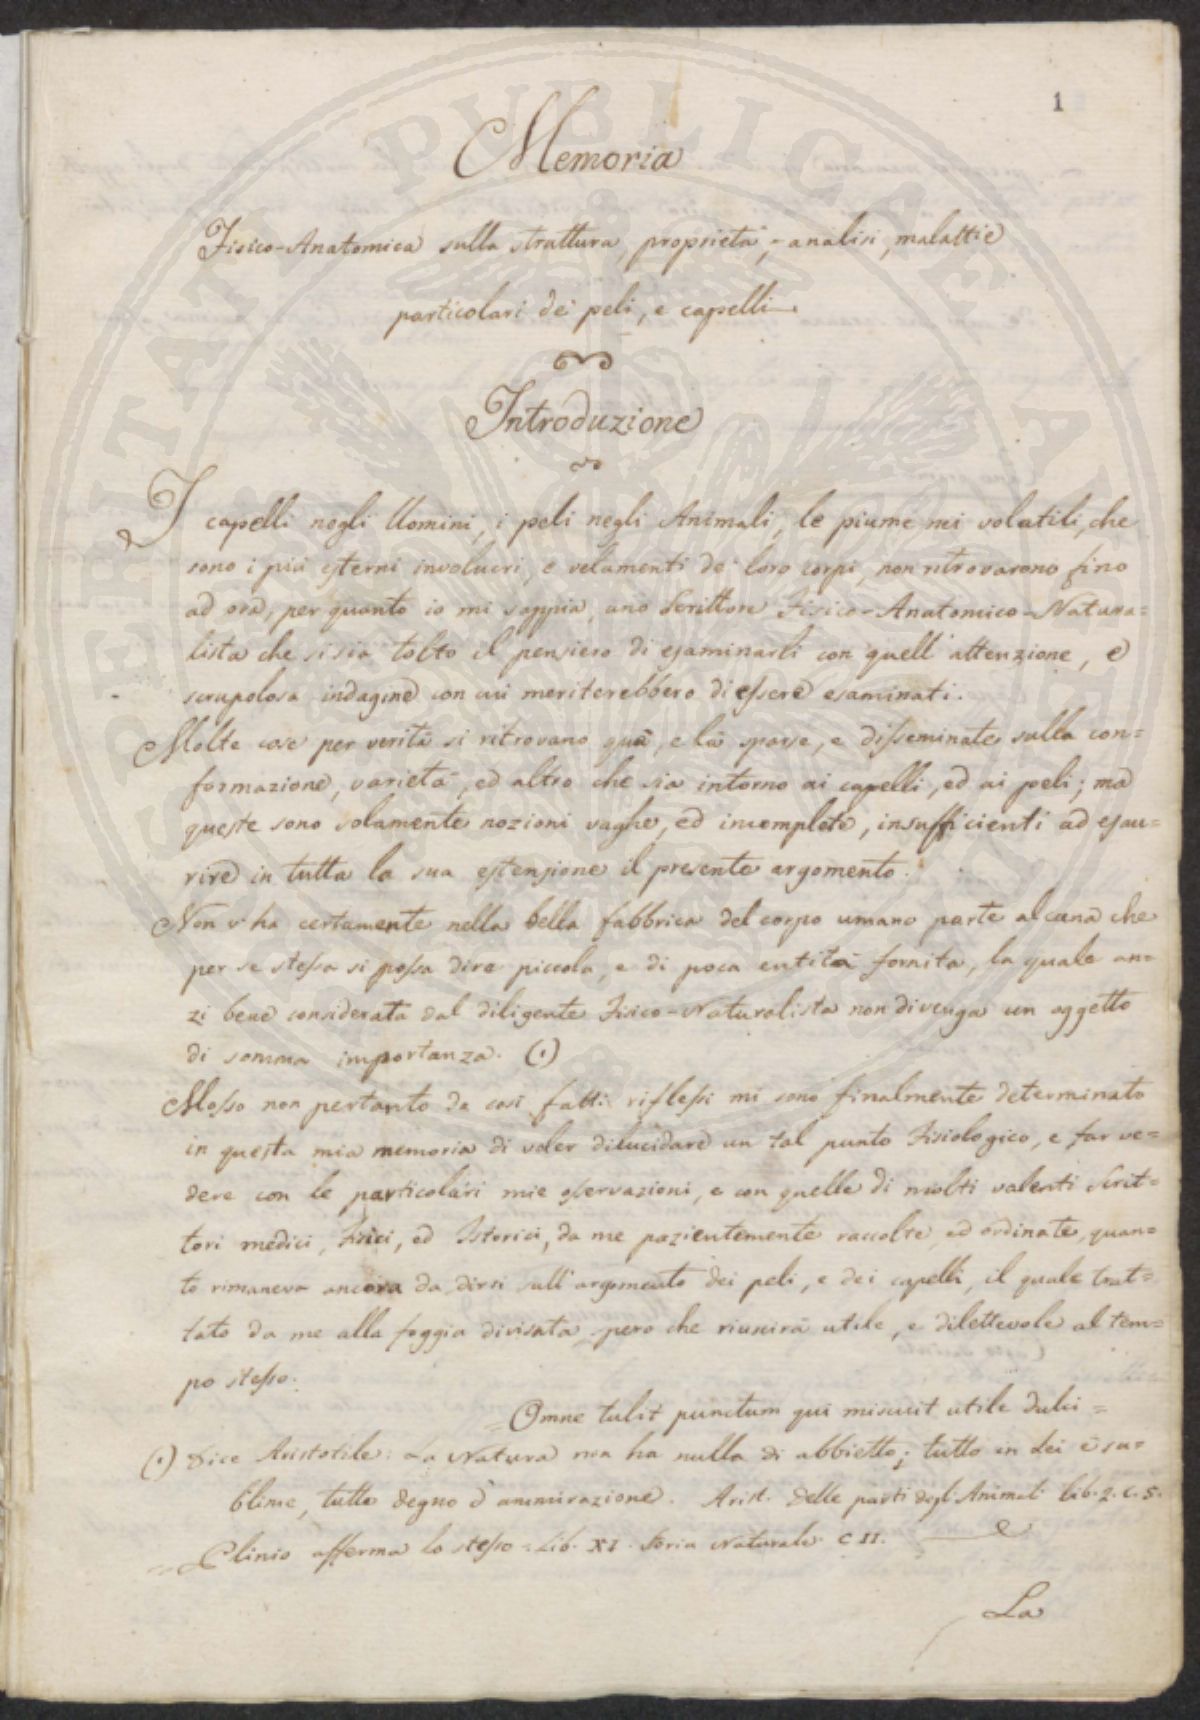 1
Memoria
Fisico-Anatomica sulla struttura, proprietà, analisi, malattie
particolari dei peli, e capelli
Introduzione
I capelli negli Uomini, i peli negli Animali, le piume nei volatili, che
sono i più esterni involucri, e velamenti de' loro corpi, non ritrovarono fino
ad ora, per quanto io mi sappia, uno Scrittore Fisico-Anatomico-Natura=
lista che si sia tolto il pensiero di esaminarli con quell'attenzione, e
scrupolosa indagine con cui meriterebbero di essere esaminati.
Molte cose per verità si ritrovano quà, e là sparse, e disseminate sulla con=
formazione, varietà, ed altro che sia intorno ai capelli, ed ai peli; ma
queste sono solamente nozioni vaghe, ed incomplete, insufficienti ad esau=
rire in tutta la sua estensione il presente argomento.
Non v'ha certamente nella bella fabbrica del corpo umano parte alcuna che
per se stessa si possa dire piccola, e di poca entità fornita, la quale an=
zi bene considerata dal diligente Fisico-Naturalista non divenga un oggetto
di somma importanza. (1)
Mosso non pertanto da così fatti riflessi mi sono finalmente determinato
in questa mia memoria di voler dilucidare un tal punto Fisiologico, e far ve=
dere con le particolari mie osservazioni, e con quelle di molti valenti Scrit=
tori medici, Fisici, ed Istorici, da me pazientemente raccolte, ed ordinate, quan=
to rimaneva ancora da dirsi sull'argomento dei peli, e dei capelli, il quale trat=
tato da me alla foggia divisata, spero che riuscirà utile, e dilettevole al tem=
po stesso.
=Omne tulit punctum qui miscuit utile dulci=
(1) Dice Aristotile: La Natura non ha nulla di abbietto; tutto in Lei è su=
blime, tutto degno d'ammirazione. Arist. Delle parti degli Animali lib. 2. c. 5.
= Plinio afferma lo stesso: Lib. XI. Storia Naturale. C II.
La
SPERITATI PUBLICAE